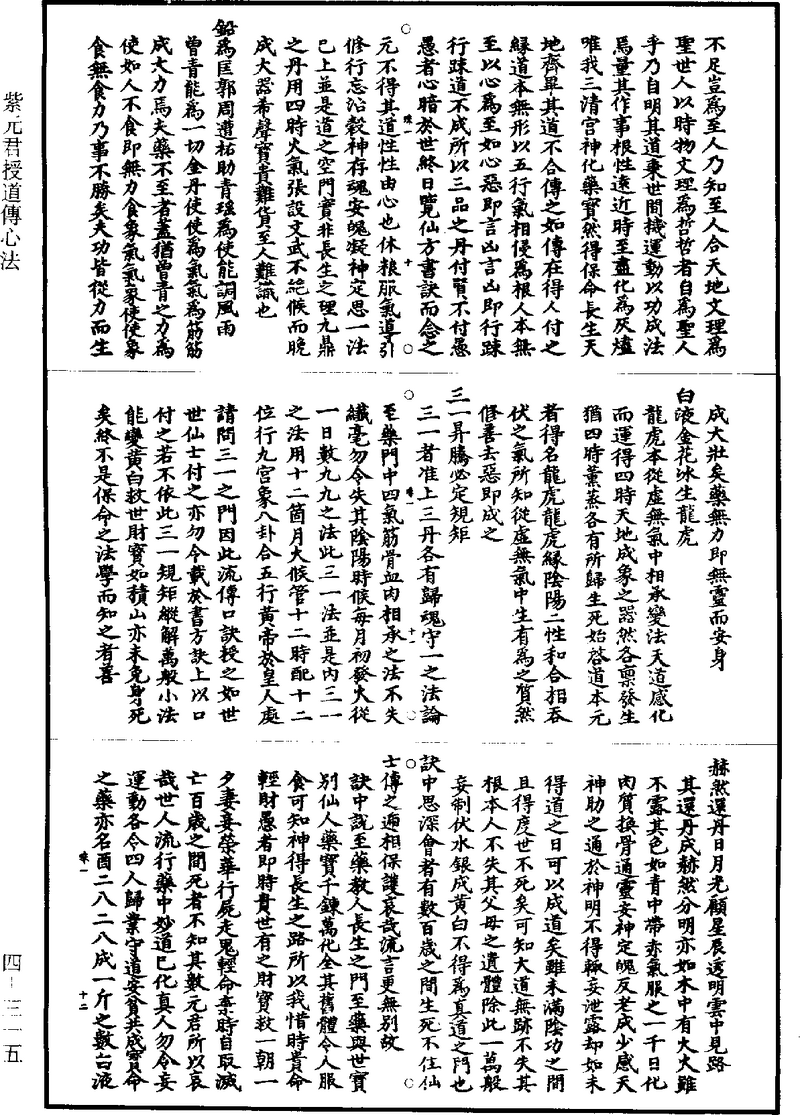 紫元君授道傳心法
四-三一五
不足豈為至人乃知至人合天地文理為
聖世人以時物文理為哲哲者自為聖人
乎乃自明其道秉世間機運動以功成法
焉量其作事根性遠近時至盡化為灰爐
唯我三清宮神化藥寶然得保命長生天
地齊畢其道不合傳之如傳在得人付之
緣道本無形以五行氣相侵為根人本無
至以心為至如心惡即言凶言凶即行踈
行踈道不成所以三品之丹付賢不付愚
愚者心暗於世終日覽仙方書訣而念之
元不得其道性性由心也休粮服氣導引
修行忘沿穀神存魂安魄凝神定思一法
已上並是道之空門實非長生之理九鼎
之丹用四時火氣張設文武不絕候而晚
成大器希聲寶貴難貨至人難識也
鉛為匡郭周遭祐助青瑶為使能調風雨
曾青能為一切金丹使使為氣氣為筋筋
成大力焉夫藥不至者盖猶曾青之力為
使如人不食即無力食象氣氣象使使象
食無食力乃事不勝矣夫功皆從力而生
成大壯矣藥無力即無靈而安身
白液金花水生龍虎
龍虎本從虛無氣中相承變法天道感化
而運得四時天地成象之器然各稟發生
猶四時薰蒸各有所歸生死始啓道本元
者得名龍虎龍虎緣陰陽二性和合招吞
伏之氣所知從虛無氣中生有為之質然
修善去惡即成之
三一昇騰必定規矩
三一者准上三丹各有歸魂守一之法論
至藥門中四氣筋骨血肉相承之法不失
纎毫勿令失其陰陽時候每月初發火從
一日數九九之法此三一法並是內三一
之法用十二箇月火候管十二時配十二
位行九宮象八卦合五行黃帝於皇人處
請問三一之門因此流傳口訣授之如世
世仙士付之亦勿令載於書方訣上以口
付之若不依此三一規矩縱解萬般小法
能變黃白救世財寶如積山亦未免身死
矣終不是保命之法學而知之者善
赫然還丹日月光顧星辰透明雲中見路
其還丹成赫然分明亦如木中有火火雖
不露其色如青中帶赤氣服之一千日化
肉質換骨通靈安神定魄反老成少感天
神助之通於神明不得輙妄泄露却如未
得道之日可以成道矣雖未滿陰功之間
且得度世不死矣可知大道無跡不失其
根本人不失其父母之遺體除此一萬般
妄制伏水銀成黃白不得為真道之門也
訣中思深會者有數百歲之間生死不住仙
士傳之遞相保護哀哉流言更無別故
訣中說至藥教人長生之門至藥與世寶
別仙人藥寶千鍊萬化全其舊體令人服
食可知神得長生之路所以我惜時貴命
輕財愚者即時貴世有之財寶救一朝一
夕妻妾榮華行屍走鬼輕命棄時自取滅
亡百歲之間死者不知其數元君所以哀
哉世人流行藥中妙道已化真人勿令妄
運動各令四人歸業守道安貧共成寶命
之藥亦名酉二八二八成一斤之數白液